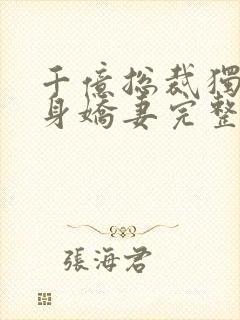 千億总裁獨
身嬌妻完整
張海君